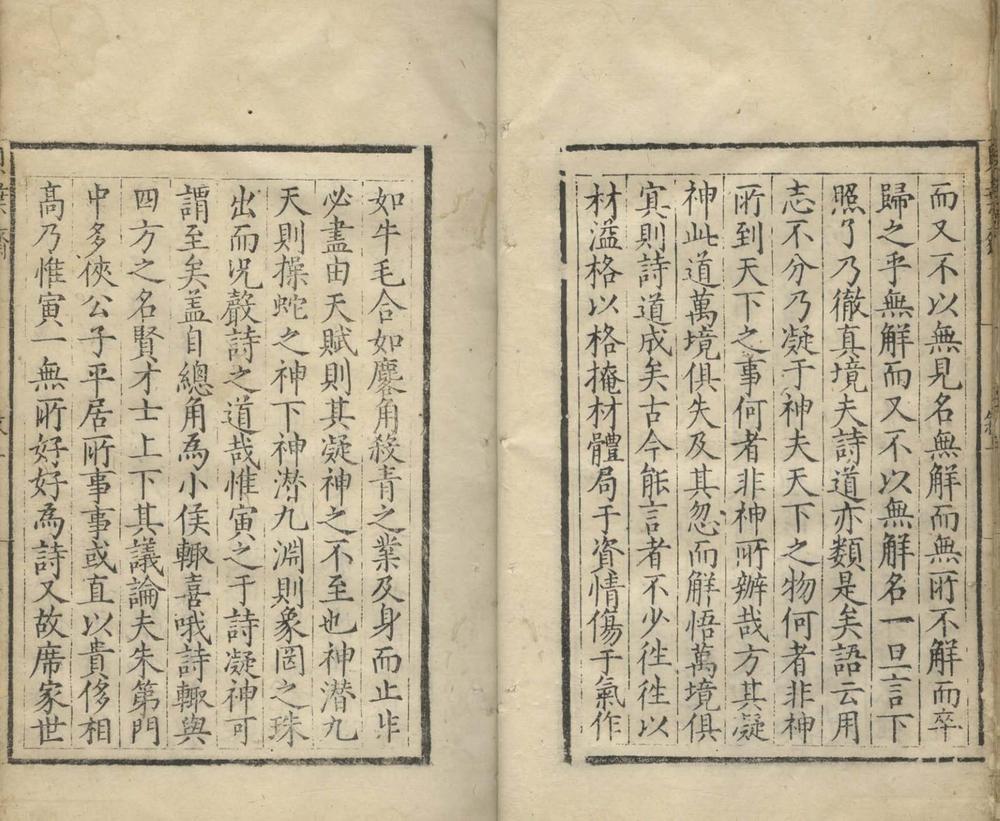 而又不以無見名無解而無所不解而卒
歸之乎無解而又不以無解名一旦言下
照了乃徹真境夫詩道亦類是矣語云用
志不分乃凝于神夫天下之物何者非神
所到天下之事何者非神所辦哉方其凝
神此道萬境俱失及其忽而解悟萬境俱
寘則詩道成矣古今能言者不少徃徃以
材溢格以格掩材體局于資情傷于氣作
如牛毛合如麐角殺青之業及身而止非
必盡由天賦則其凝神之不至也神潜九
天則操蛇之神下神潜九淵則象罔之珠
出而况嚴詩之道哉惟寅之于詩凝神可
謂至矣盖自總角為小侯輙喜哦詩輙與
四方之名賢才士上下其議論夫朱第門
中多俠公子平居所事事或直以貴侈相
髙乃惟寅一無所好好為詩又故席家世